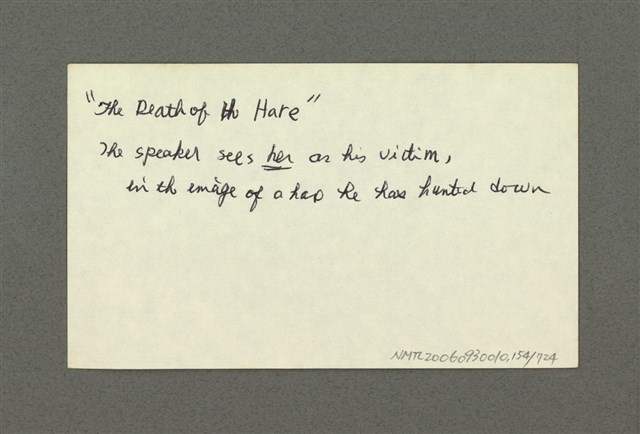 "The Death of th Hare"
The speaker sees her as his victim,
in th image of a hare he has hunted down
NMTL20060930010,154/724